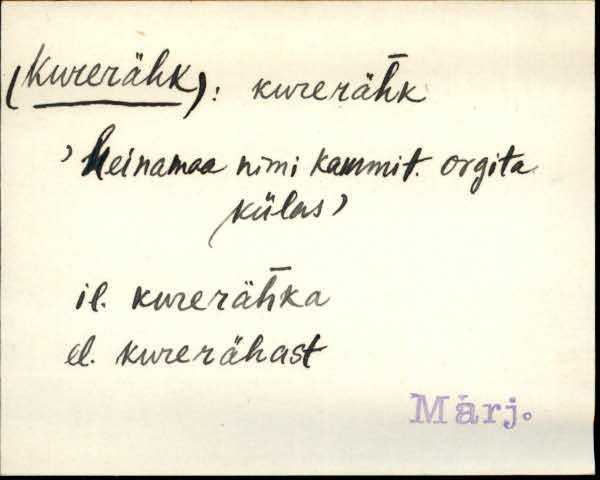 (Kurerähk): kureräh̄k
’Heinamaa nimi kammit. orgita
külas’
il. kureräh̄ka
el. kurerähast
Märj.